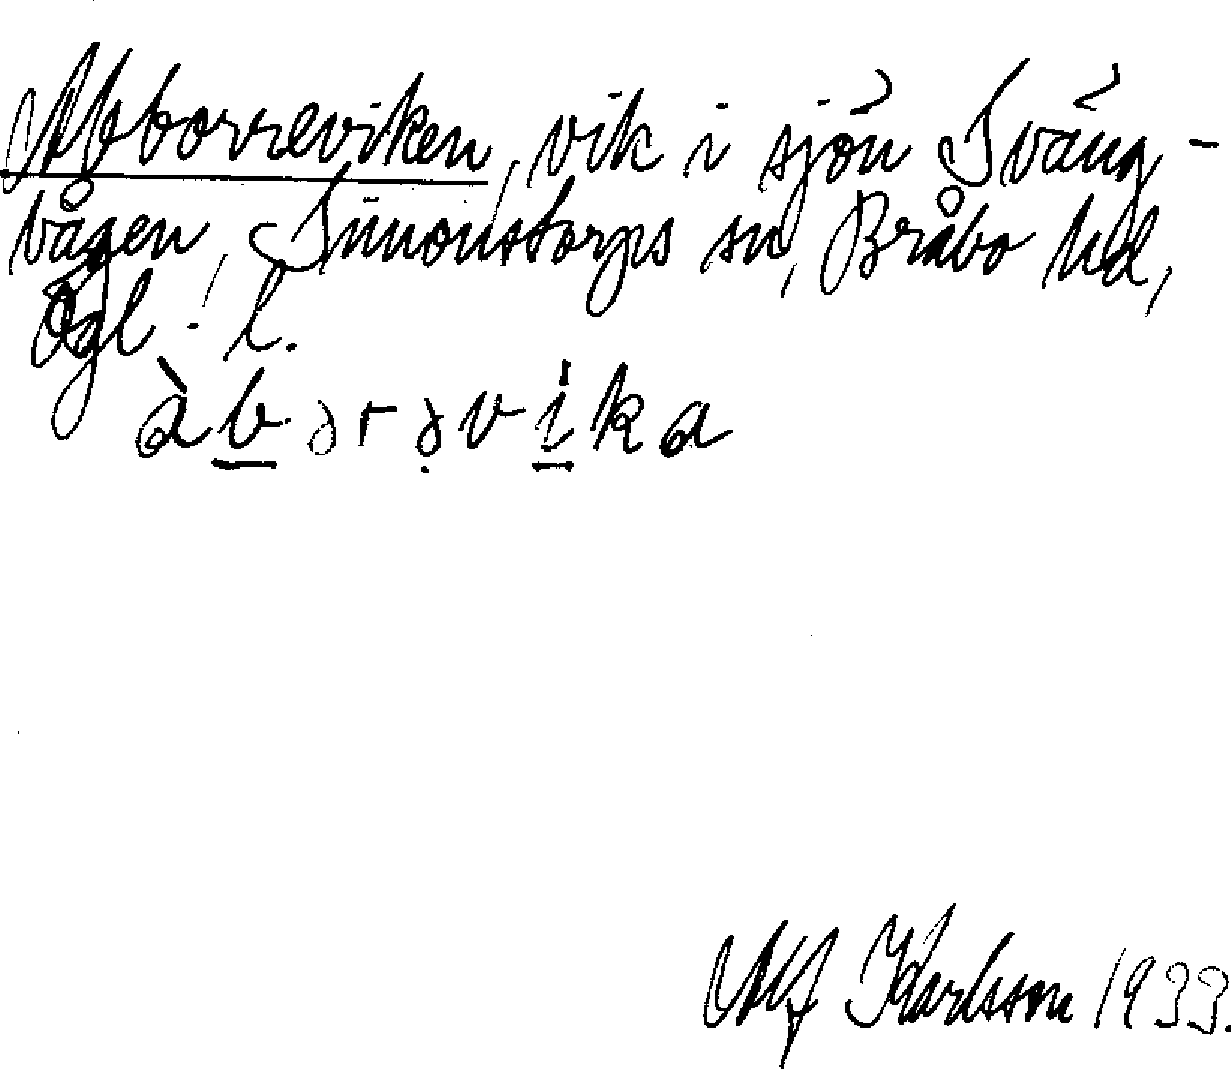 Abborreviken, vik i sjön Sväng-
bågen, Simonstorps sn, Bråbo hd,
Ögl. l.
àbərəvika
Alf Karlsson 1933.